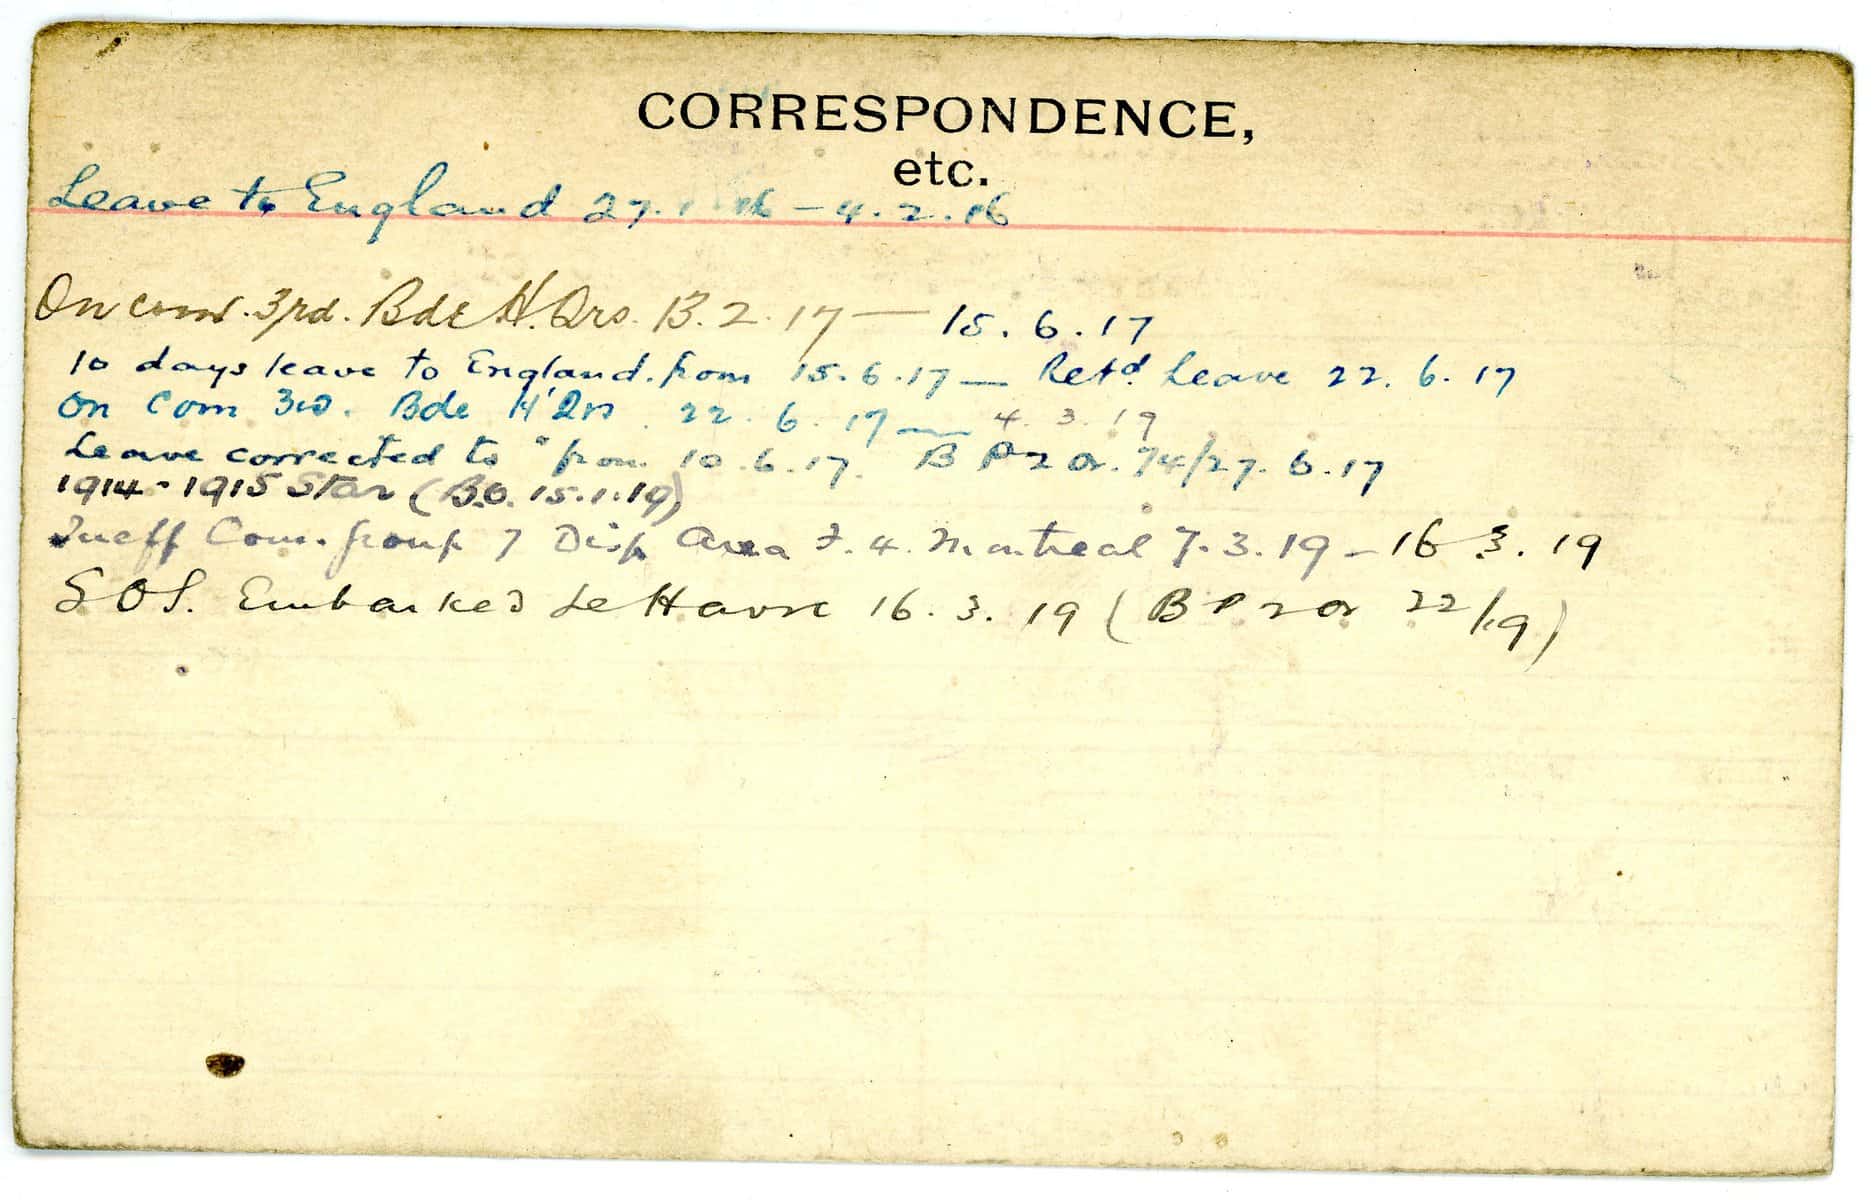 CORRESPONDENCE,
etc.
Leave to England 27. 1 16 – 4. 2. 16
On com. 3rd. Bde H. Qrs. 13. 2. 17 — 15. 6. 17
10 days leave to England. from 15. 6. 17 — Retd. Leave 22. 6. 17
On Com 3rd. Bde H'Qrs 22. 6. 17 — 4. 3. 19
Leave corrected to "from 10. 6. 17. B P2 Or. 74/27. 6. 17
1914-1915 Star (B.O. 15.1.19)
Ineff Com. Group 7 Disp Area F. 4. Montreal 7. 3. 19 – 16 3. 19
S O S. Embarked Le Havre 16. 3. 19 (B P 2 Or 22/19)